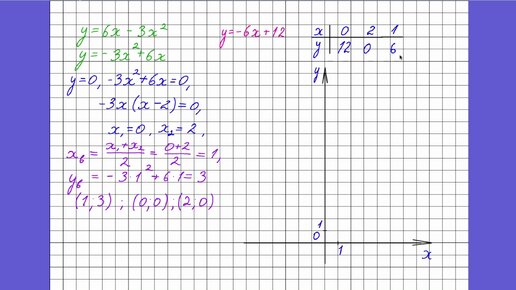 y=6x-3x²
y=-3x²+6x
y=0, -3x²+6x=0,
-3x(x-2)=0,
x₁=0, x₂=2,
xв = (x₁+x₂)/2 = (0+2)/2 = 1,
yв = -3·1²+6·1=3
(1,3); (0,0); (2,0)
y=-6x+12
x 0 2 1
y 12 0 6
y
1
0
1
x